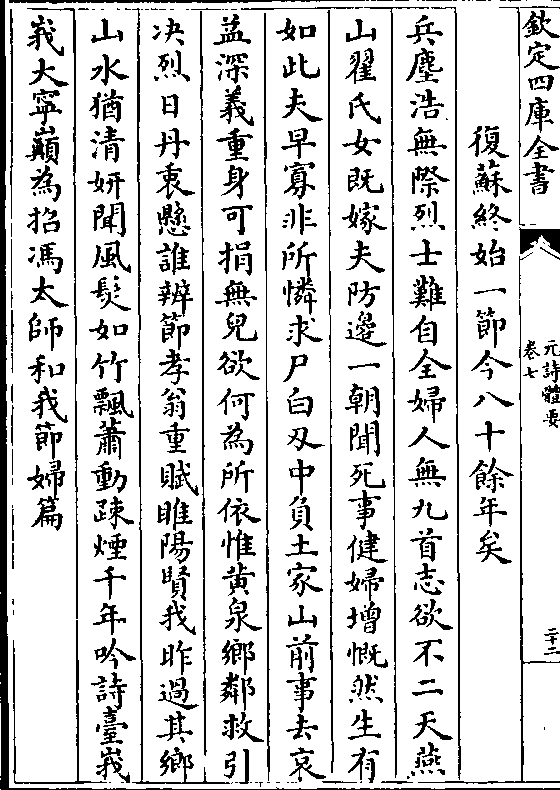 欽定四庫全書
元詩體要
卷七
二十二
復蘇終始一節今八十餘年矣
兵塵浩無際烈士難自全婦人無九首志欲不二天燕
山翟氏女既嫁夫防邊一朝聞死事健婦增慨然生有
如此夫早寡非所憐求尸白刃中負土家山前事去哀
益深義重身可捐無兒欲何為所依惟黄泉鄉鄰救引
决烈日丹衷懸誰辨節孝翁重賦睢陽賢我昨過其鄉
山水猶清妍聞風髮如竹飄蕭動疎煙千年吟詩臺峩
峩大寧巔為招馮太師和我節婦篇